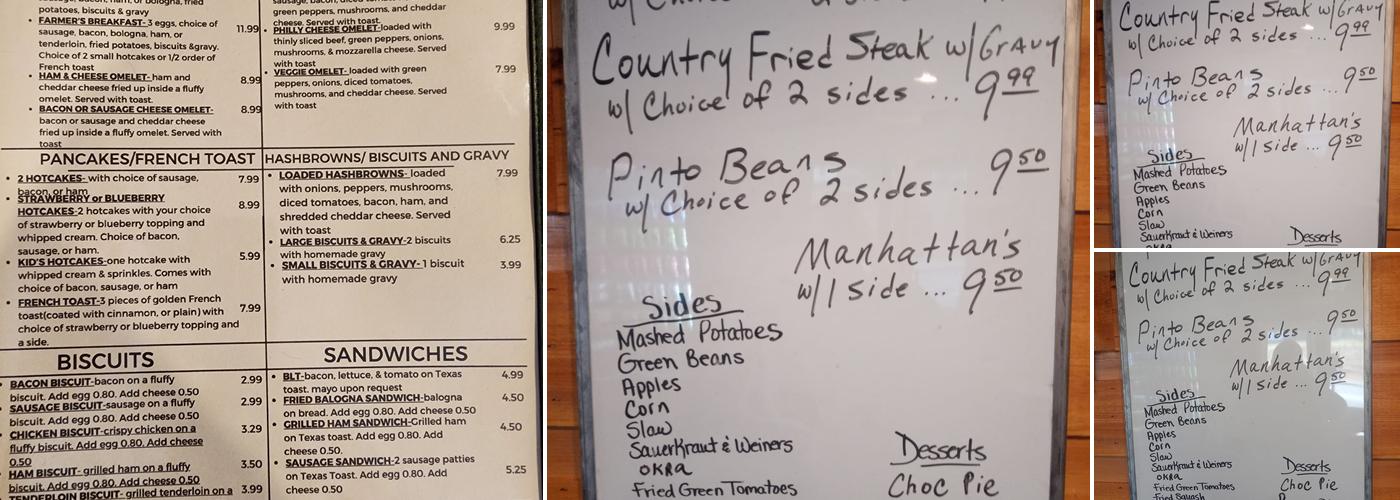 potatoes, biscuits & gravy
FARMER'S BREAKFAST- 3 eggs, choice of
sausage, bacon, bologna, ham, or
tenderloin, fried potatoes, biscuits &gravy.
Choice of 2 small hotcakes or 1/2 order of
French toast
11.99
HAM & CHEESE OMELET- ham and
cheddar cheese fried up inside a fluffy
omelet. Served with toast.
8.99
BACON OR SAUSAGE CHEESE OMELET-
bacon or sausage and cheddar cheese
fried up inside a fluffy omelet. Served with
toast
8.99
green peppers, mushrooms, and cheddar
cheese. Served with toast
PHILLY CHEESE OMELET-loaded with
thinly sliced beef, green peppers, onions,
mushrooms, & mozzarella cheese. Served
with toast
9.99
VEGGIE OMELET- loaded with green
peppers, onions, diced tomatoes,
mushrooms, and cheddar cheese. Served
with toast
7.99
PANCAKES/FRENCH TOAST
2 HOTCAKES- with choice of sausage,
bacon, or ham
7.99
STRAWBERRY or BLUEBERRY
HOTCAKES-2 hotcakes with your choice
of strawberry or blueberry topping and
whipped cream. Choice of bacon,
sausage, or ham.
8.99
KID'S HOTCAKES-one hotcake with
whipped cream & sprinkles. Comes with
choice of bacon, sausage, or ham
5.99
FRENCH TOAST-3 pieces of golden French
toast(coated with cinnamon, or plain) with
choice of strawberry or blueberry topping and
a side.
7.99
HASHBROWNS/ BISCUITS AND GRAVY
LOADED HASHBROWNS- loaded
with onions, peppers, mushrooms,
diced tomatoes, bacon, ham, and
shredded cheddar cheese. Served
with toast
7.99
LARGE BISCUITS & GRAVY-2 biscuits
with homemade gravy
6.25
SMALL BISCUITS & GRAVY- 1 biscuit
with homemade gravy
3.99
BISCUITS
BACON BISCUIT-bacon on a fluffy
biscuit. Add egg 0.80. Add cheese 0.50
2.99
SAUSAGE BISCUIT-sausage on a fluffy
biscuit. Add egg 0.80. Add cheese 0.50
2.99
CHICKEN BISCUIT-crispy chicken on a
fluffy biscuit. Add egg 0.80. Add cheese
0.50
3.29
HAM BISCUIT- grilled ham on a fluffy
biscuit. Add egg 0.80. Add cheese 0.50
3.50
TENDERLOIN BISCUIT- grilled tenderloin on a
3.99
SANDWICHES
BLT-bacon, lettuce, & tomato on Texas
toast. mayo upon request
4.99
FRIED BALOGNA SANDWICH-balogna
on bread. Add egg 0.80. Add cheese 0.50
4.50
GRILLED HAM SANDWICH-Grilled ham
on Texas toast. Add egg 0.80. Add
cheese 0.50.
4.50
SAUSAGE SANDWICH-2 sausage patties
on Texas Toast. Add egg 0.80. Add
cheese 0.50
5.25
Country Fried Steak w/GrAVY
w/ Choice of 2 sides ... 9.99
Pinto Beans
w/ Choice of 2 sides ... 9.50
Manhattan's
w/1 side ... 9.50
Sides
Mashed Potatoes
Green Beans
Apples
Corn
Slaw
SauerKraut & Weiners
OKRA
Fried Green Tomatoes
Desserts
Choc Pie
Country Fried Steak w/GrAVY
w/ Choice of 2 sides ... 9.99
Pinto Beans
w/ Choice of 2 sides ... 9.50
Manhattan's
w/1 side ... 9.50
Sides
Mashed Potatoes
Green Beans
Apples
Corn
Slaw
SauerKraut & Weiners
Desserts
Country Fried Steak w/GrAVY
w/ Choice of 2 sides ... 9.99
Pinto Beans
w/ Choice of 2 sides ... 9.50
Manhattan's
w/1 side ... 9.50
Sides
Mashed Potatoes
Green Beans
Apples
Corn
Slaw
SauerKraut & Weiners
OKRA
Fried Green Tomatoes
Fried Squash
Desserts
Choc Pie